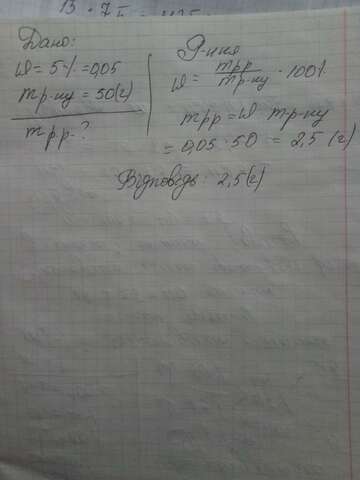 Дано:
W = 5% = 0,05
m р-ну = 50(г)
m р.р - ?
W = m р.р / m р-ну · 100%
m р.р = W · m р-ну
= 0,05 · 50 = 2,5 (г)
Відповідь: 2,5(г)